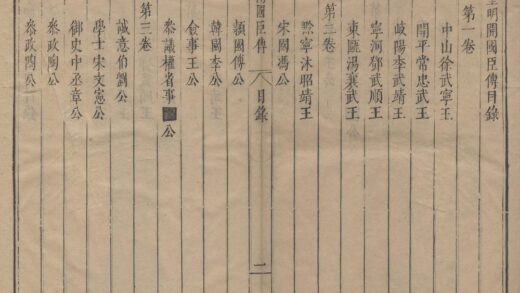 皇明開國臣傳目錄
第一卷
中山徐武寧王
開平常忠武王
岐陽李武靖王
寧河鄧武順王
東甌湯襄武王
第二卷
黔寧沐昭靖王
宋國馮公
國臣傳 目錄 二
潁國傅公
韓國李公
僉事王公
叅議權省事公
第三卷
誠意伯劉公
學士宋文憲公
御史中丞章公
叅政陶公
叅政陶公